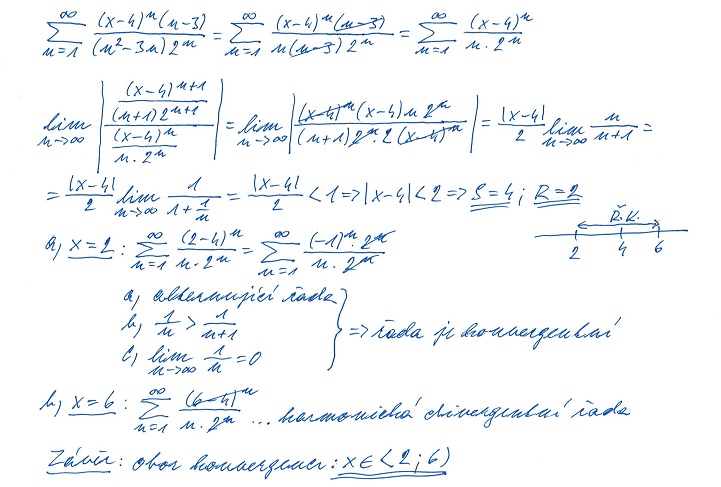 ∑_{n=1}^{∞} (x-4)^n (n-3) / (n²-3n) 2^n = ∑_{n=1}^{∞} (x-4)^n (n-3) / n(n-3) 2^n = ∑_{n=1}^{∞} (x-4)^n / n. 2^n
lim_{n→∞} | ((x-4)^{n+1} / (n+1) 2^{n+1}) / ((x-4)^n / n. 2^n) | = lim_{n→∞} | (x-4)^n (x-4) n 2^n / (n+1) 2^n. 2 (x-4)^n | = |x-4|/2 lim_{n→∞} n/(n+1) =
= |x-4|/2 lim_{n→∞} 1/(1+1/n) = |x-4|/2 < 1 => |x-4| < 2 => S=4; R=2
Ř.K.
2 4 6
a, x=2 : ∑_{n=1}^{∞} (2-4)^n / n. 2^n = ∑_{n=1}^{∞} (-1)^n. 2^n / n. 2^n
a, alternující řada
b, 1/n > 1/(n+1) } => řada je konvergentní
c, lim_{n→∞} 1/n = 0
b, x=6 : ∑_{n=1}^{∞} (6-4)^n / n. 2^n ... harmonická divergentní řada
Závěr: obor konvergence: x∈<2;6)